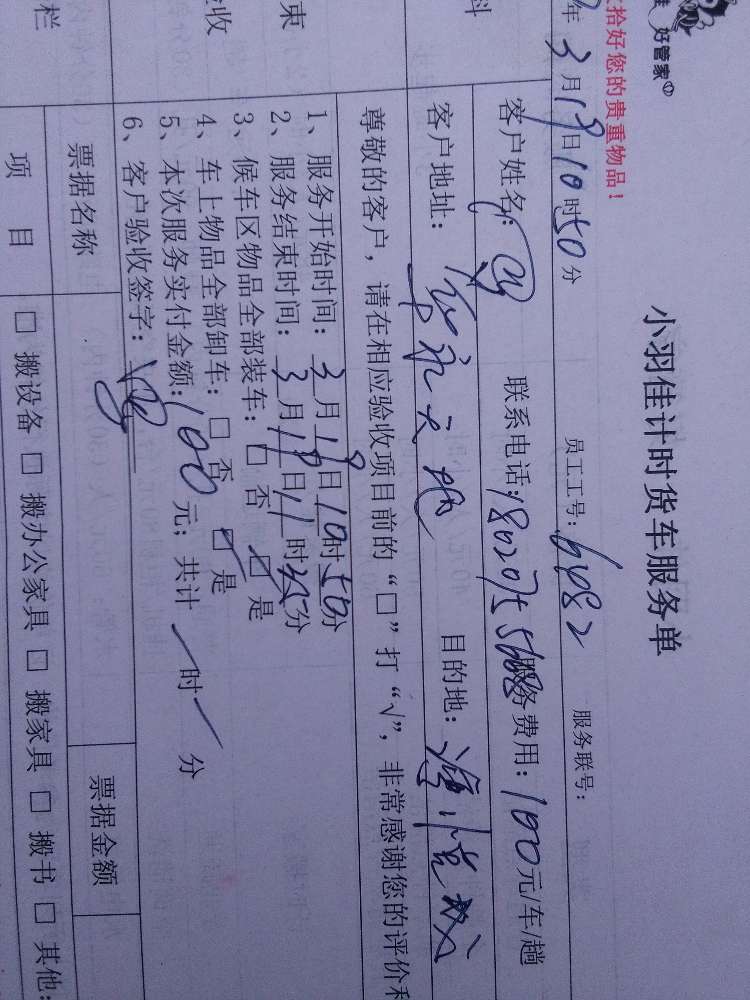 好管家
拾好您的贵重物品！
小羽佳计时货车服务单
年3月19日10时50分 员工工号：6482 服务联号：
客户姓名： 联系电话：18020755688 服务费用：100元/车/趟
料
客户地址： 目的地：
尊敬的客户，请在相应验收项目前的“□”打“√”，非常感谢您的评价和
束
1、服务开始时间：3月19日10时50分
2、服务结束时间：3月19日11时25分
3、候车区物品全部装车：□否 □是
收
4、车上物品全部卸车：□否 □是
5、本次服务实付金额：100元；共计 时 分
6、客户验收签字：
栏
票据名称 票据金额
项目 □搬设备 □搬办公家具 □搬家具 □搬书 □其他：